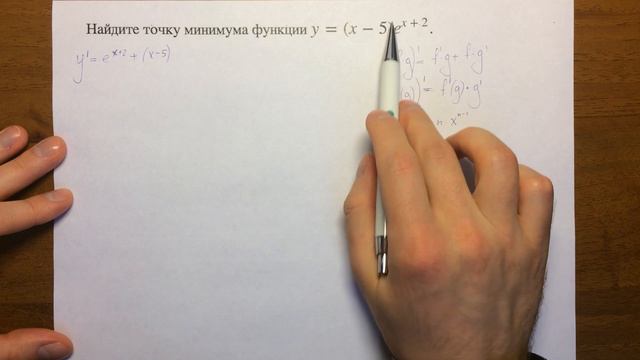 Найдите точку минимума функции y = (x − 5)e^{x + 2}.
y' = e^{x+2} + (x-5)
g)' = f'g + f·g'
(g))' = f'(g)·g'
n·x^{n-1}